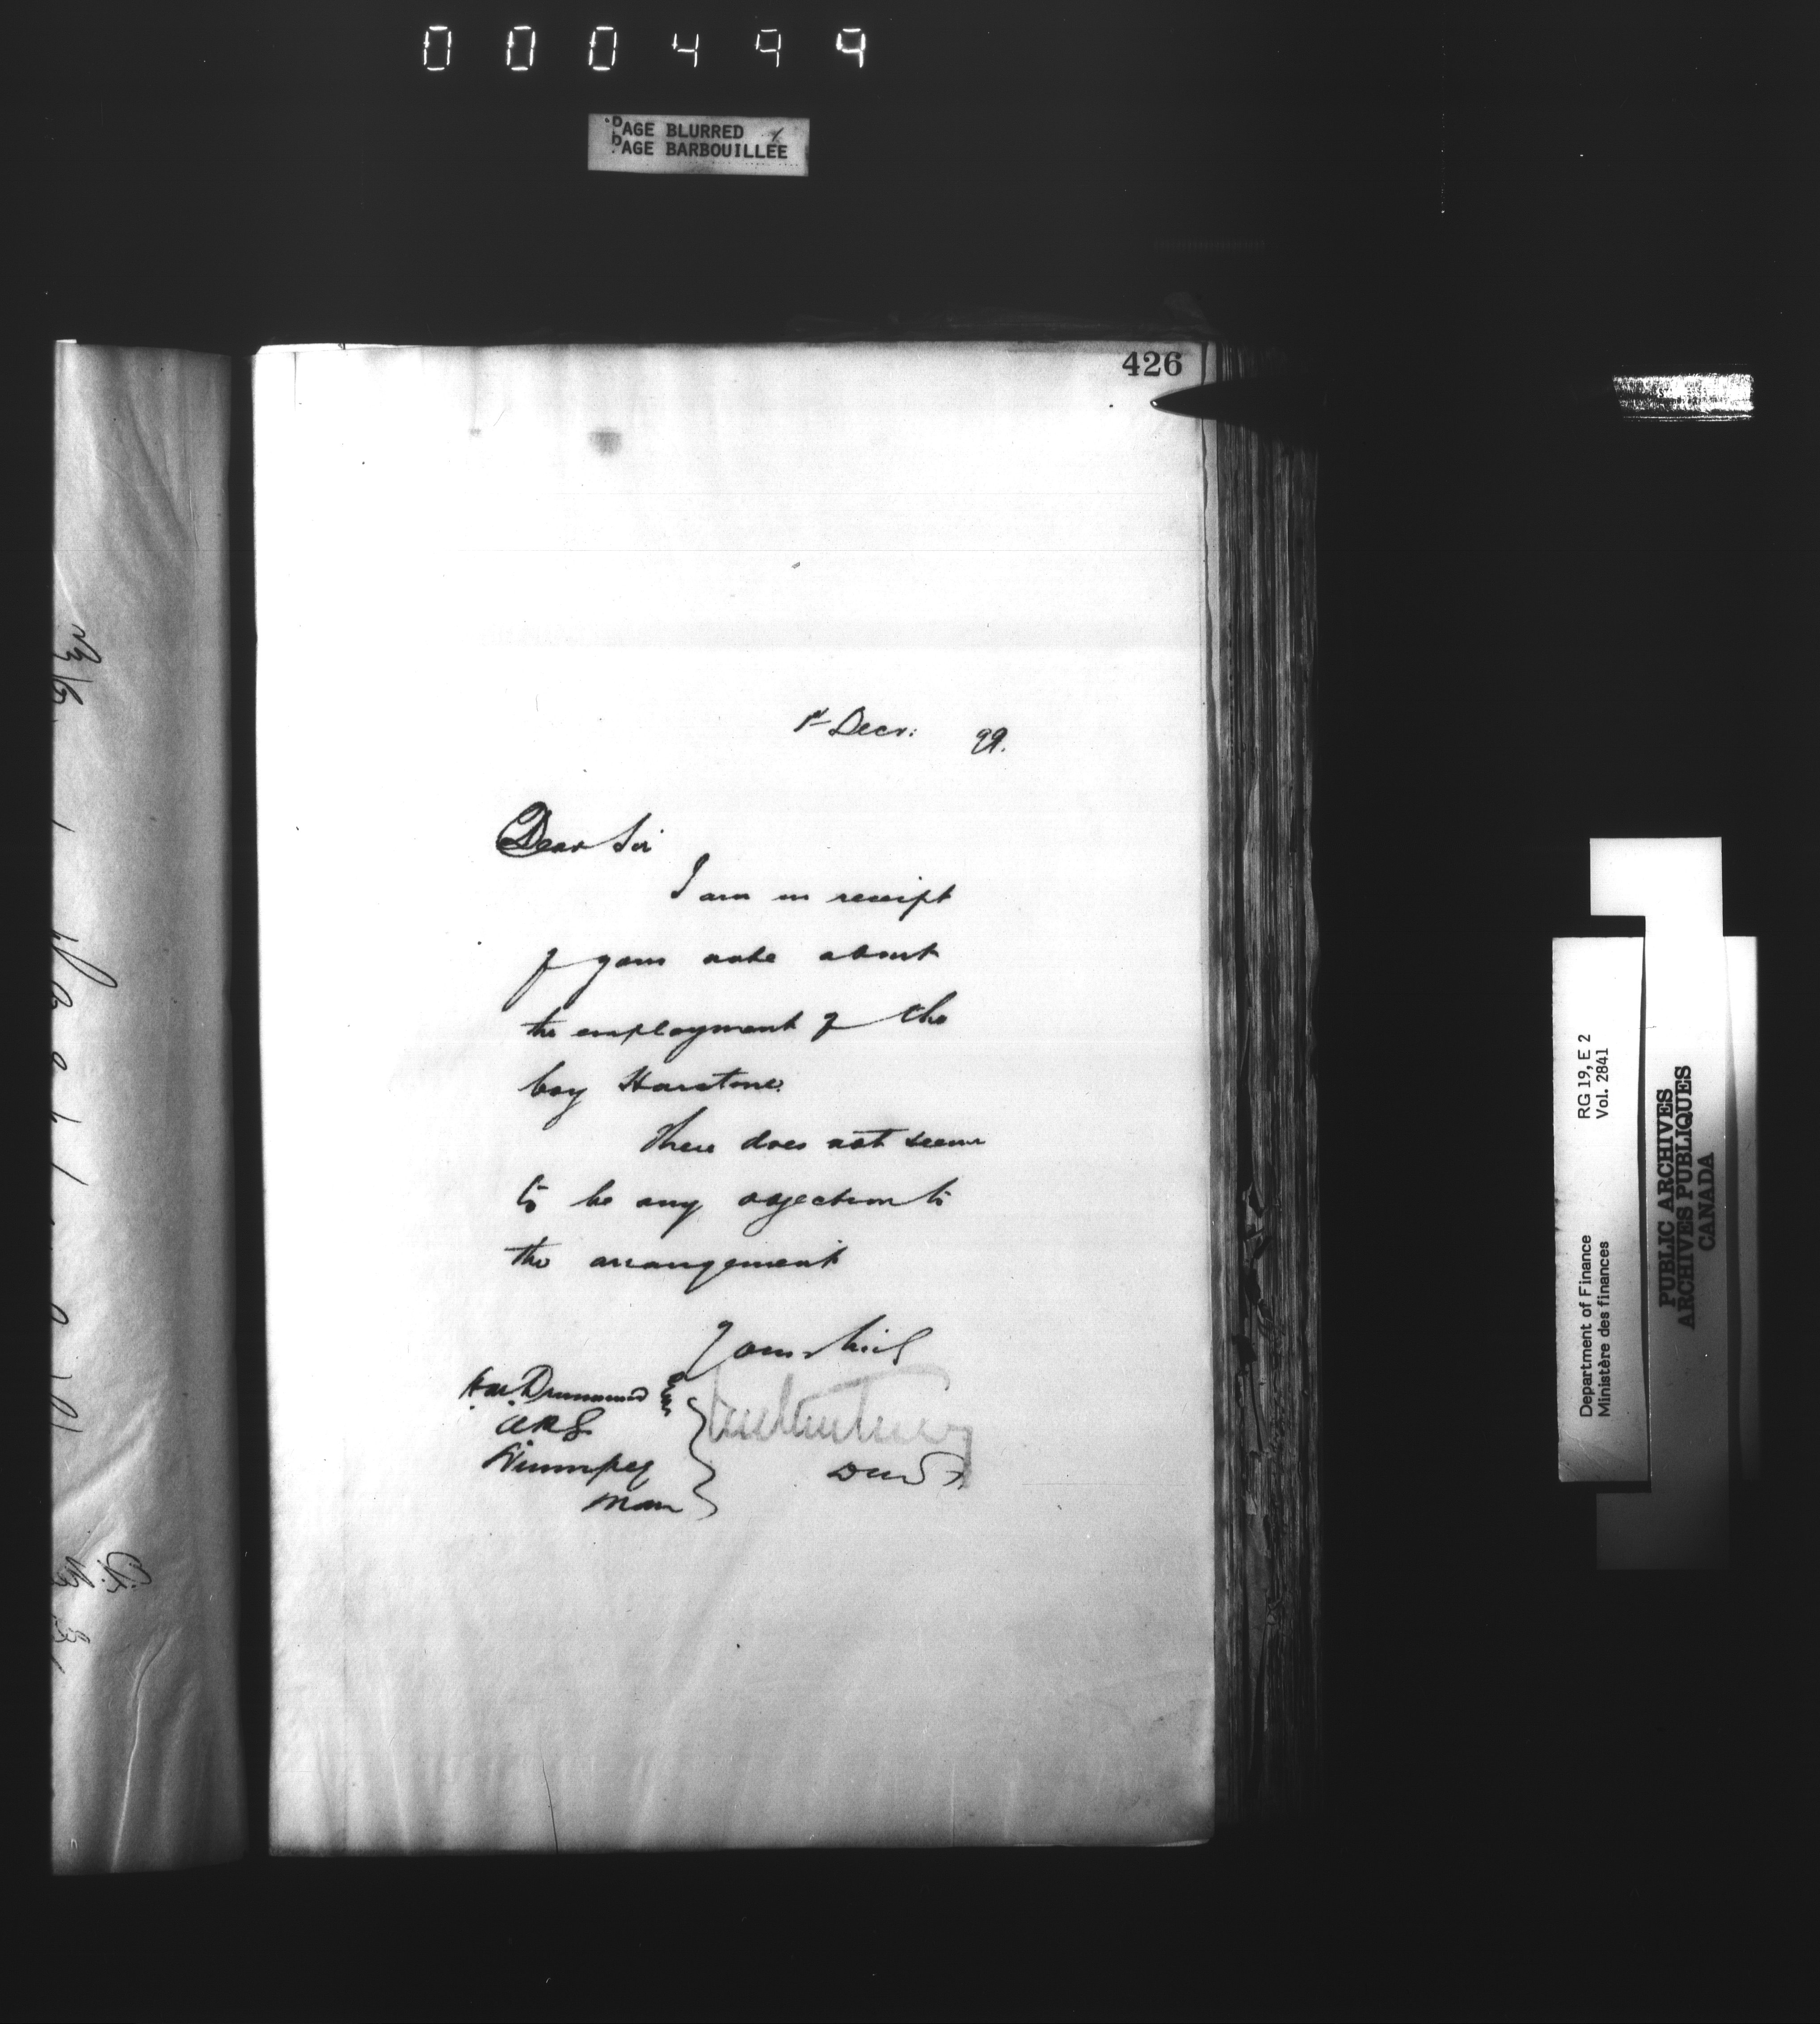 000499
PAGE BLURRED
PAGE BARBOUILLÉE
426
1st Decr: 99.
Dear Sir
I am in receipt
of your note about
the employment of the
boy Harstone.
There does not seem
to be any objection to
the arrangement
Yours truly
Drummond Esq
A R G
Winnipeg
Man
RG 19, E 2
Vol. 2841
Department of Finance
Ministère des finances
PUBLIC ARCHIVES
ARCHIVES PUBLIQUES
CANADA